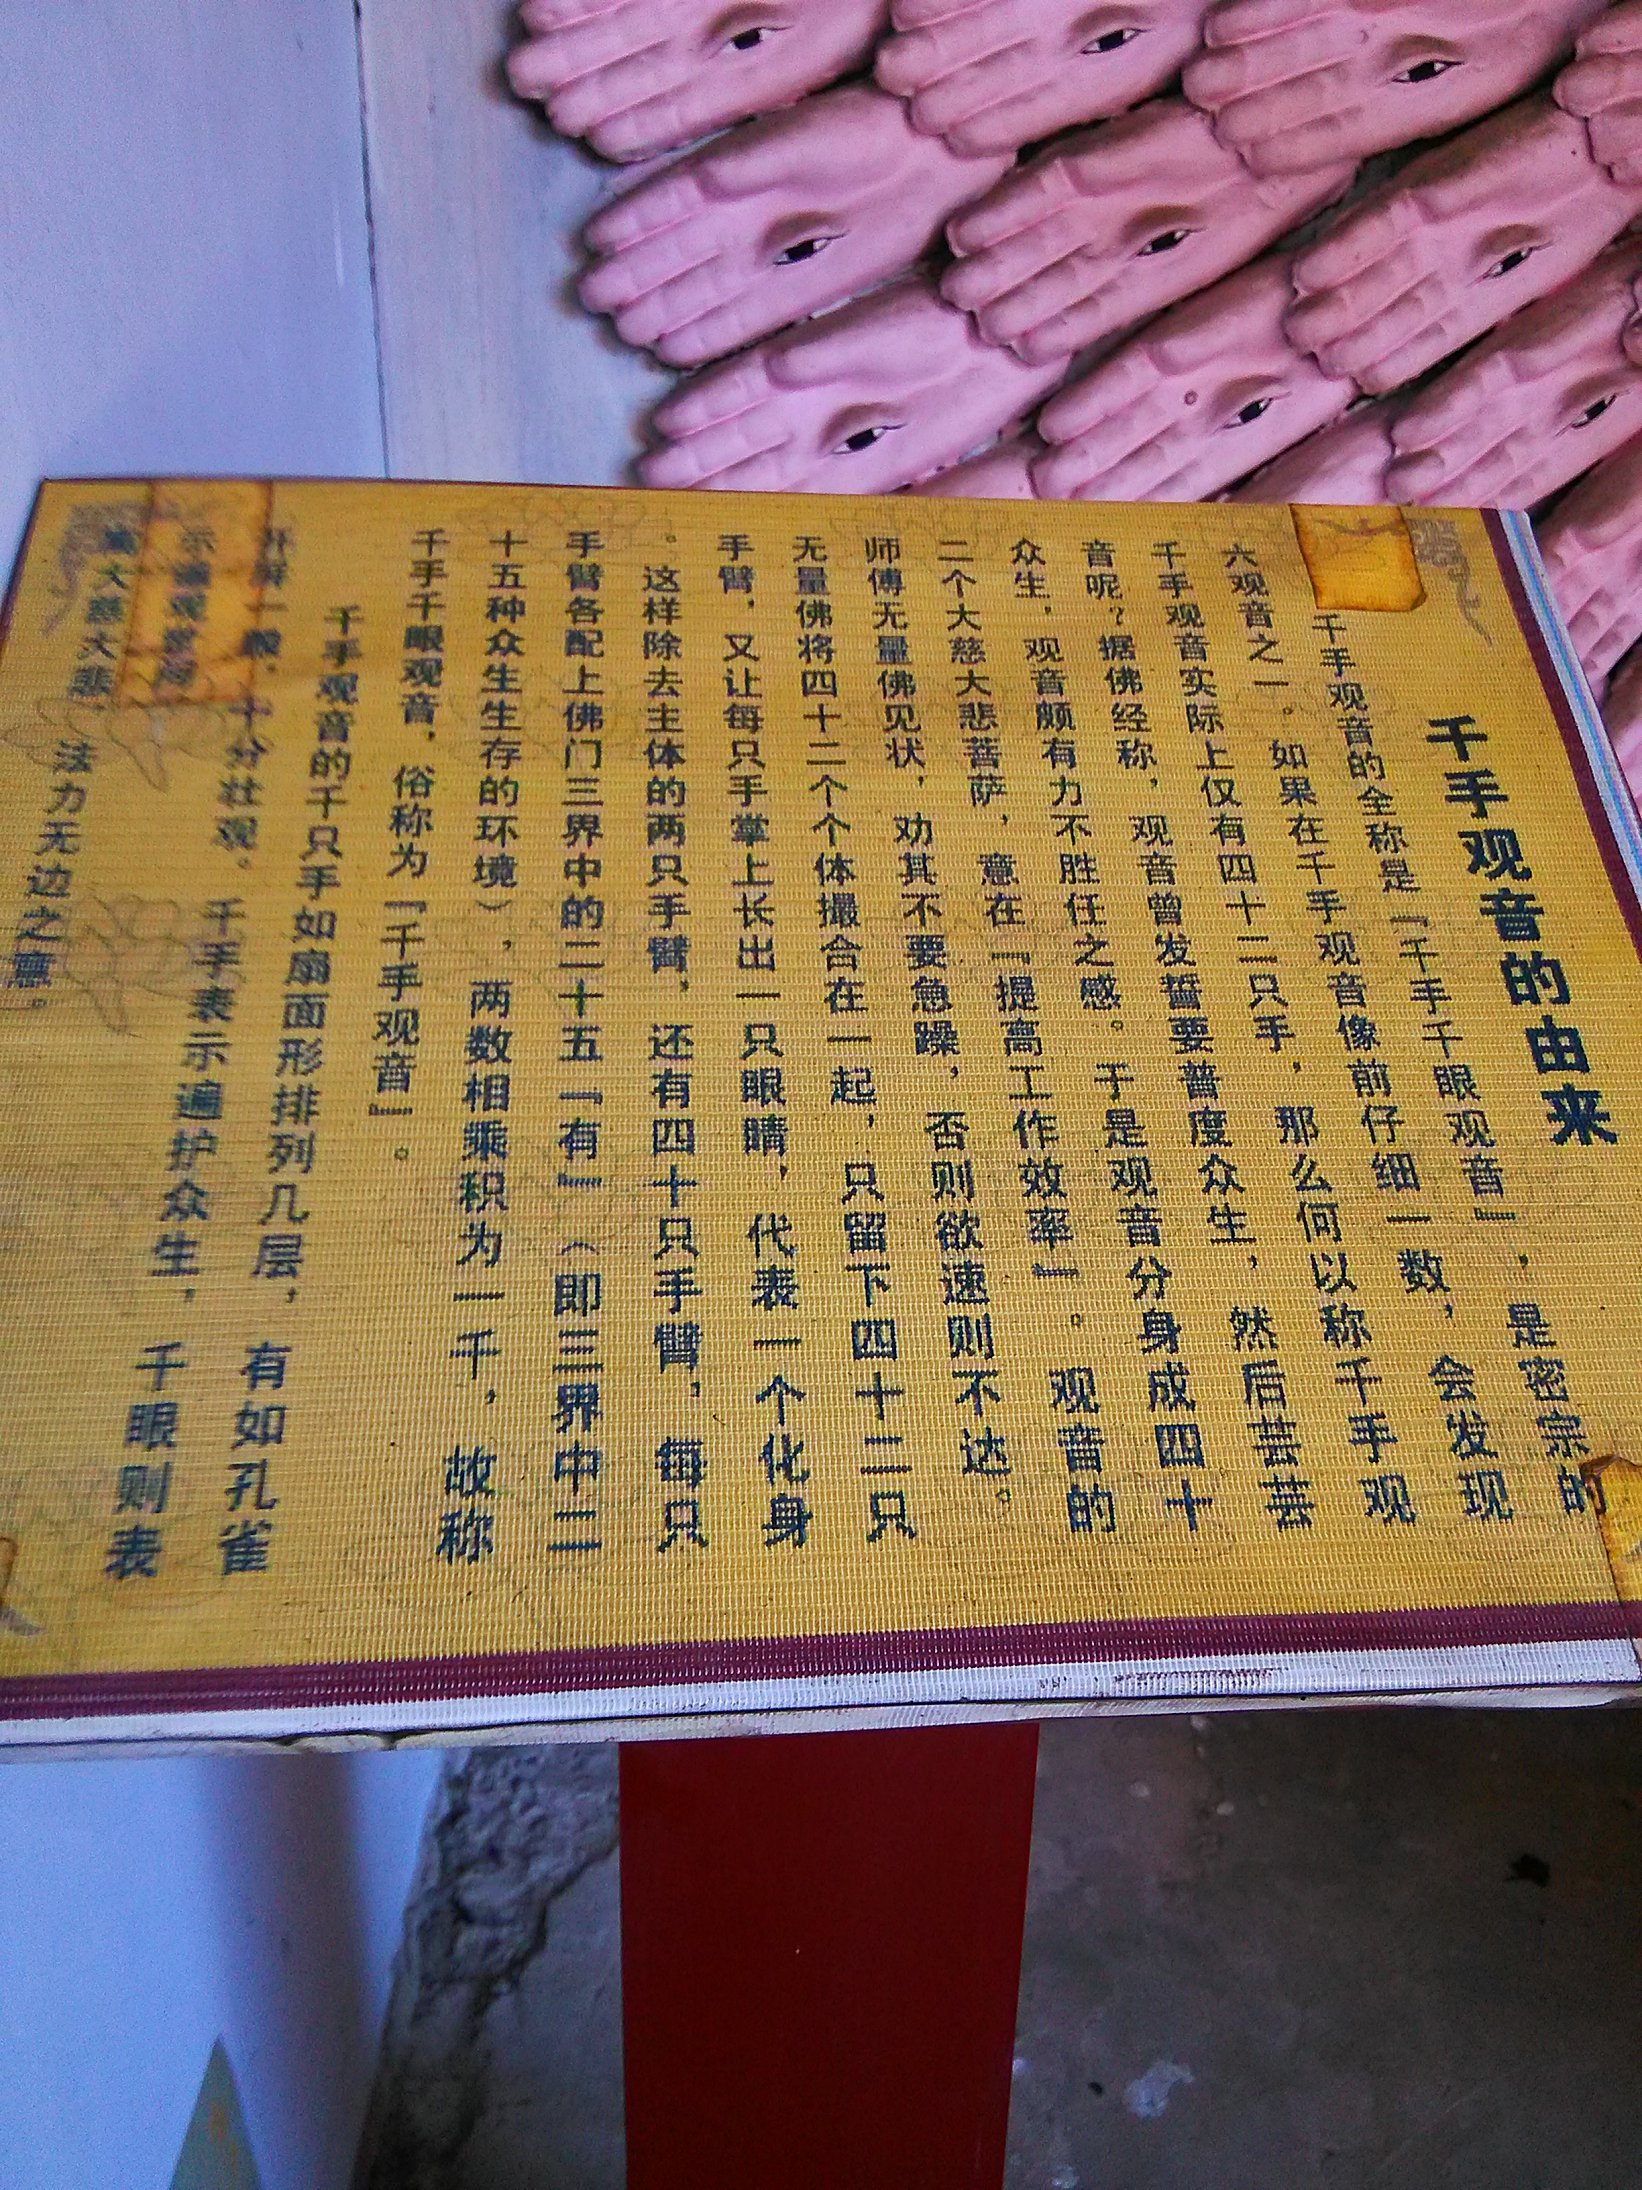 千手观音的由来
千手观音的全称是『千手千眼观音』，是密宗的
六观音之一。如果在千手观音像前仔细一数，会发现
千手观音实际上仅有四十二只手，那么何以称千手观
音呢？据佛经称，观音曾发誓要普度众生，然后芸芸
众生，观音颇有力不胜任之感。于是观音分身成四十
二个大慈大悲菩萨，意在『提高工作效率』。观音的
师傅无量佛见状，劝其不要急躁，否则欲速则不达。
无量佛将四十二个个体撮合在一起，只留下四十二只
手臂，又让每只手掌上长出一只眼睛，代表一个化身
。这样除去主体的两只手臂，还有四十只手臂，每只
手臂各配上佛门三界中的二十五『有』（即三界中二
十五种众生生存的环境），两数相乘积为一千，故称
千手千眼观音，俗称为『千手观音』。
千手观音的千只手如扇面形排列几层，有如孔雀
开屏一般，十分壮观。千手表示遍护众生，千眼则表
示遍观世间
寓大慈大悲，法力无边之意。